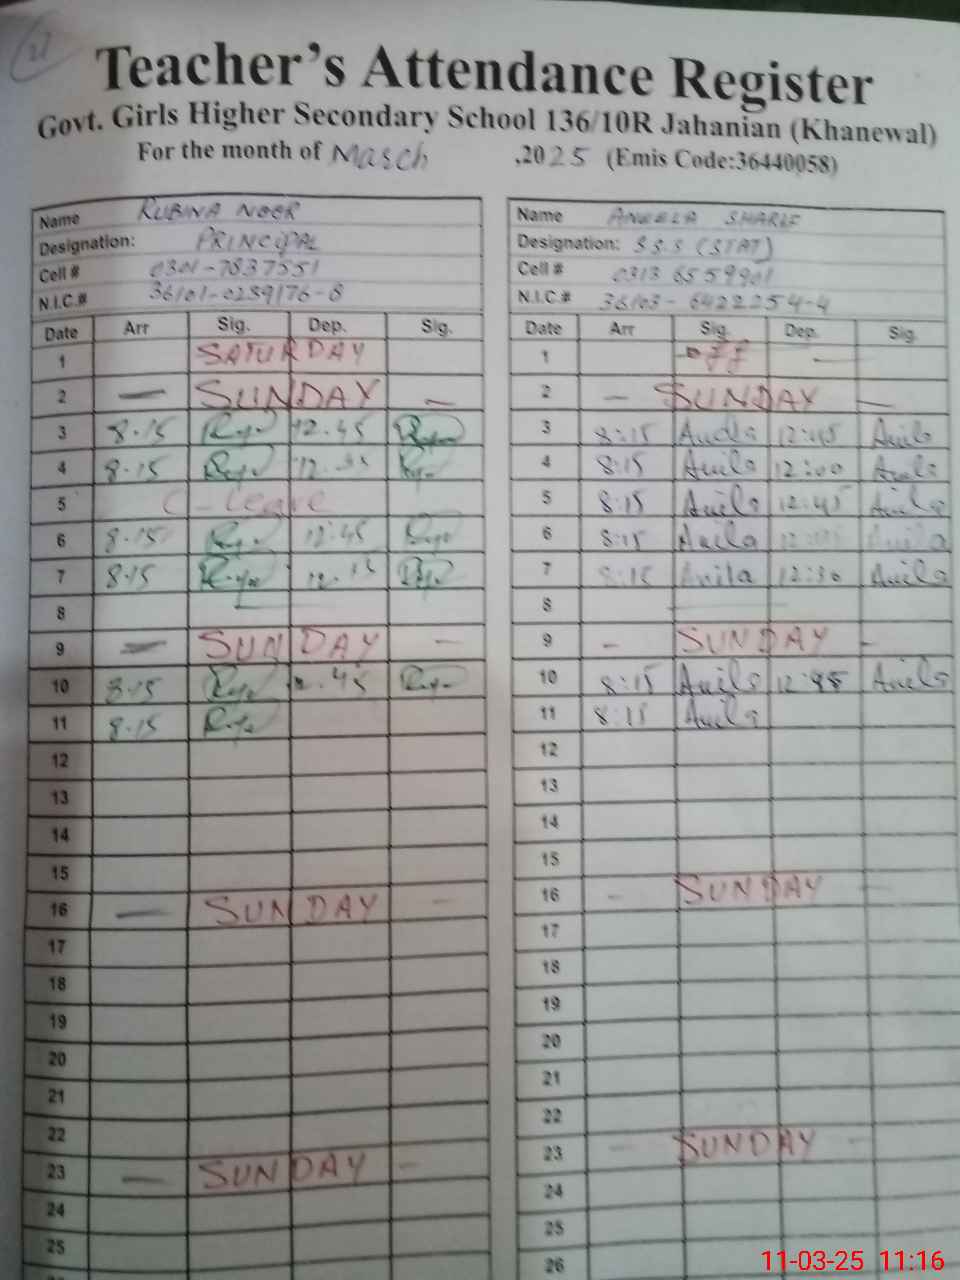 21
Teacher's Attendance Register
Govt. Girls Higher Secondary School 136/10R Jahanian (Khanewal)
For the month of March ,2025 (Emis Code:36440058)
Name RUBINA NOOR
Designation: PRINCIPAL
Cell # 0301-7837551
N.I.C.# 36101-0289176-8
Date Arr Sig. Dep. Sig.
1 SATURDAY
2 — SUNDAY —
3 8.15 12.45
4 8.15
5 C-Leave
6 8.15 12.45
7 8.15 12.15
8
9 — SUNDAY —
10 8.15
11 8.15
12
13
14
15
16 — SUNDAY -
17
18
19
20
21
22
23 — SUNDAY -
24
25
Name ANEELA SHARIF
Designation: S.S.S (STAT)
Cell # 0313 6559901
N.I.C.# 36103-6422254-4
Date Arr Sig. Dep. Sig.
1 off —
2 — SUNDAY —
3 8:15 Anila 12:45 Anila
4 8:15 Anila 12:00 Anila
5 8:15 Anila 12:45 Anila
6 8:15 Anila Anila
7 8:15 Anila 12:30 Anila
8
9 - SUNDAY -
10 8:15 Anila 12:45 Anila
11 8:15 Anila
12
13
14
15
16 - SUNDAY -
17
18
19
20
21
22
23 - SUNDAY -
24
25
26
11-03-25 11:16